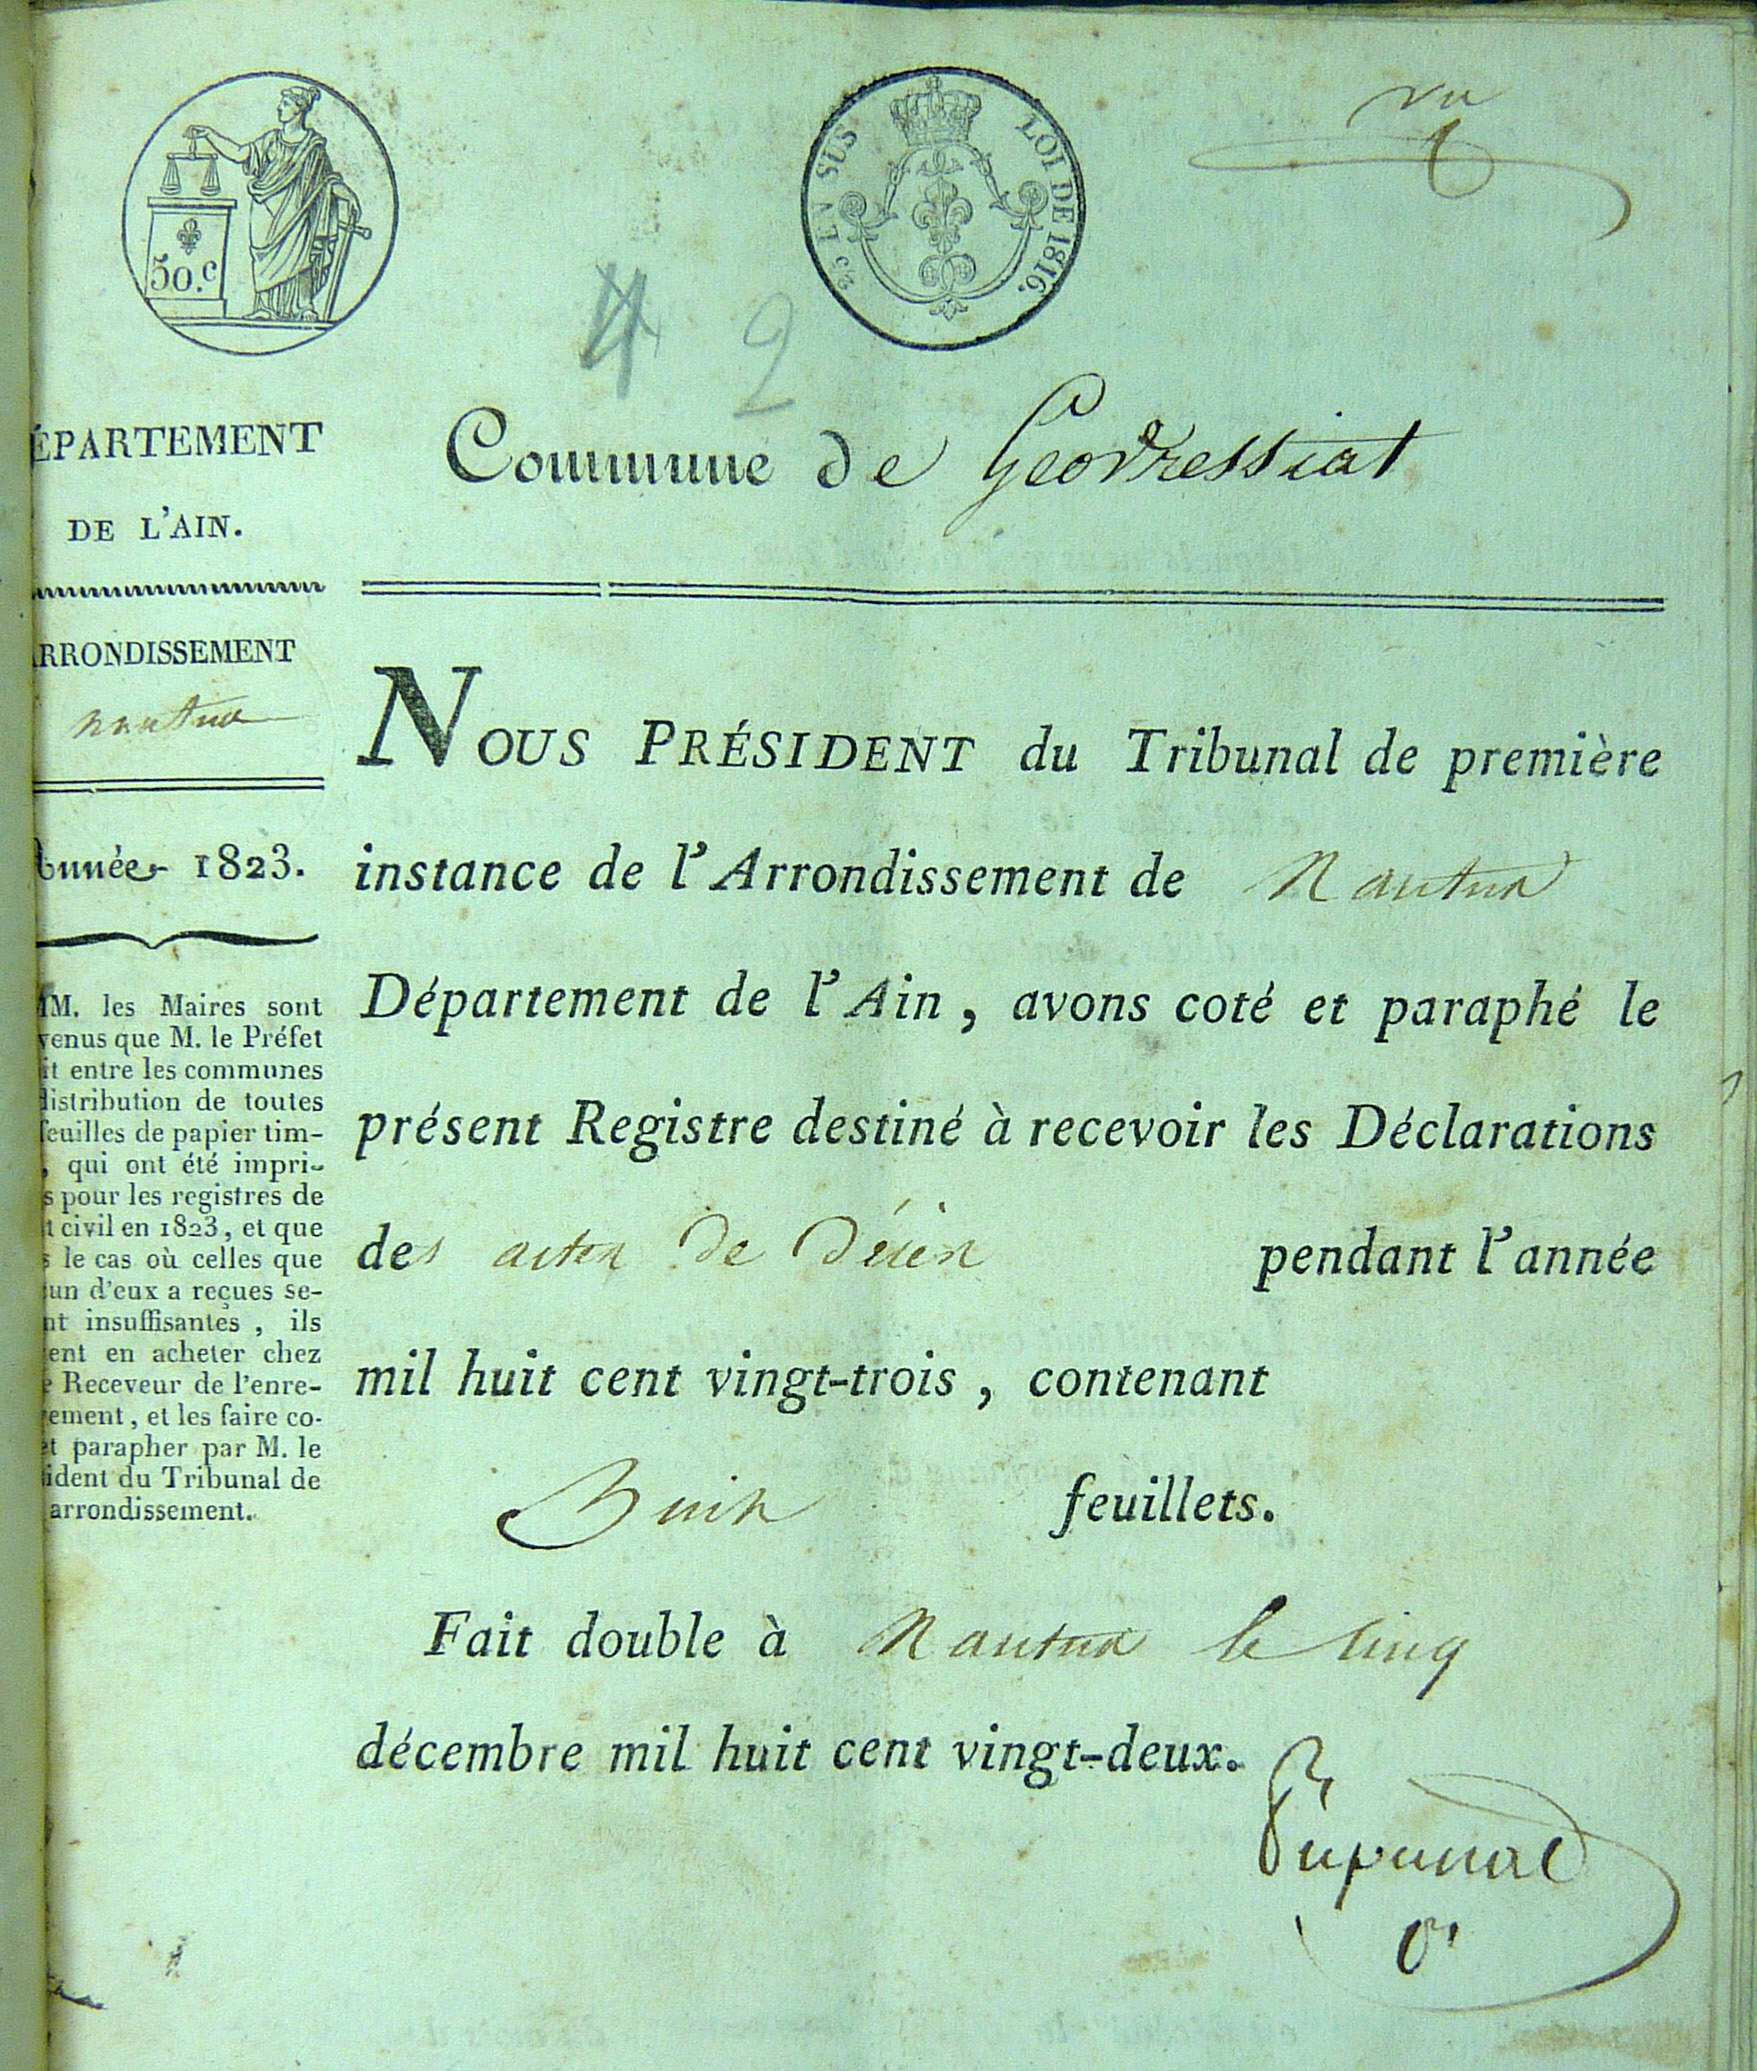 50.c
C. EN SUS
LOI DE 1816.
4 2
Commune de Geovressiat
ÉPARTEMENT
DE L'AIN.
RRONDISSEMENT
nantua
Année 1823.
M. les Maires sont
venus que M. le Préfet
it entre les communes
distribution de toutes
feuilles de papier tim-
, qui ont été impri-
s pour les registres de
t civil en 1823, et que
s le cas où celles que
un d'eux a reçues se-
nt insuffisantes, ils
ent en acheter chez
e Receveur de l'enre-
ement, et les faire co-
et parapher par M. le
ident du Tribunal de
arrondissement.
NOUS PRÉSIDENT du Tribunal de première
instance de l'Arrondissement de Nantua
Département de l'Ain, avons coté et paraphé le
présent Registre destiné à recevoir les Déclarations
des actes de décès pendant l'année
mil huit cent vingt-trois, contenant
feuillets.
Fait double à Nantua le cinq
décembre mil huit cent vingt-deux.